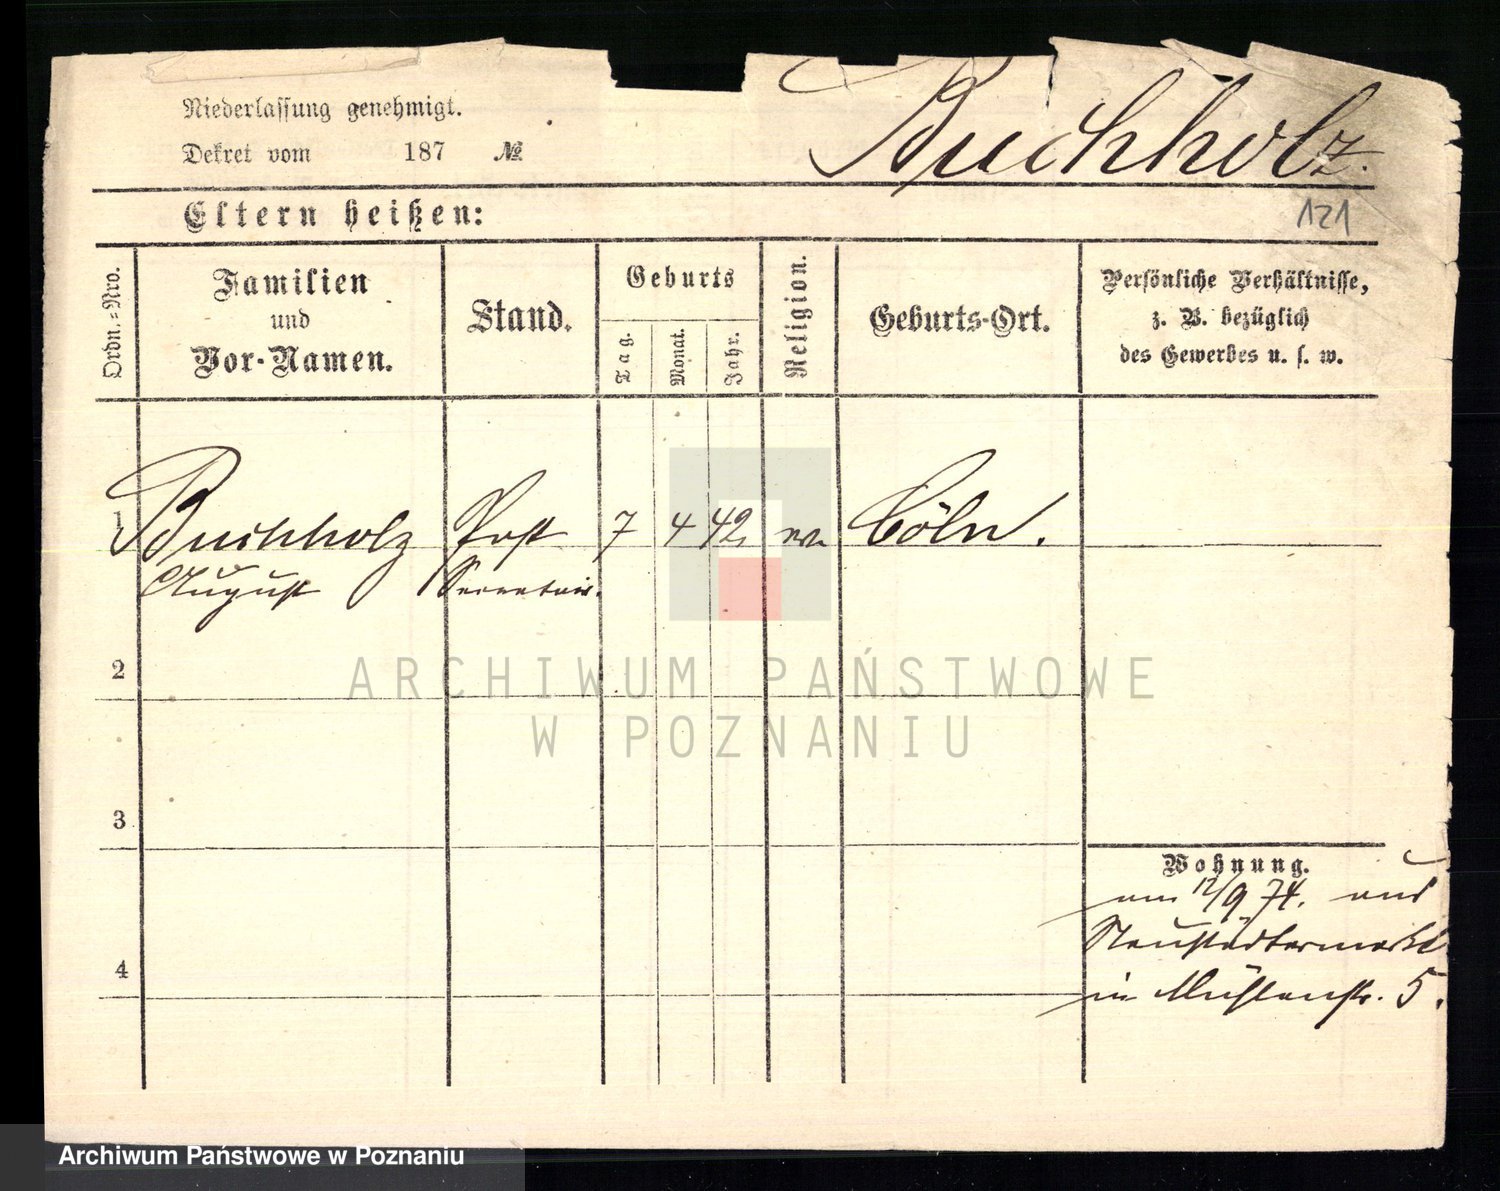 Niederlassung genehmigt.
Dekret vom 187 №
Buchholz.
Eltern heißen:
121
Ordn.=Nro.
Familien
und
Vor-Namen.
Stand.
Geburts
Tag.
Monat.
Jahr.
Religion.
Geburts-Ort.
Persönliche Verhältnisse,
z. B. bezüglich
des Gewerbes u. s. w.
1 Buchholz Post 7 4 42 ev. Cöln.
August Secretair.
2
3
4
Wohnung.
am 12/9 74. aus
Neustädtermarkt
in Mühlenstr. 5.
ARCHIWUM PAŃSTWOWE
W POZNANIU
Archiwum Państwowe w Poznaniu